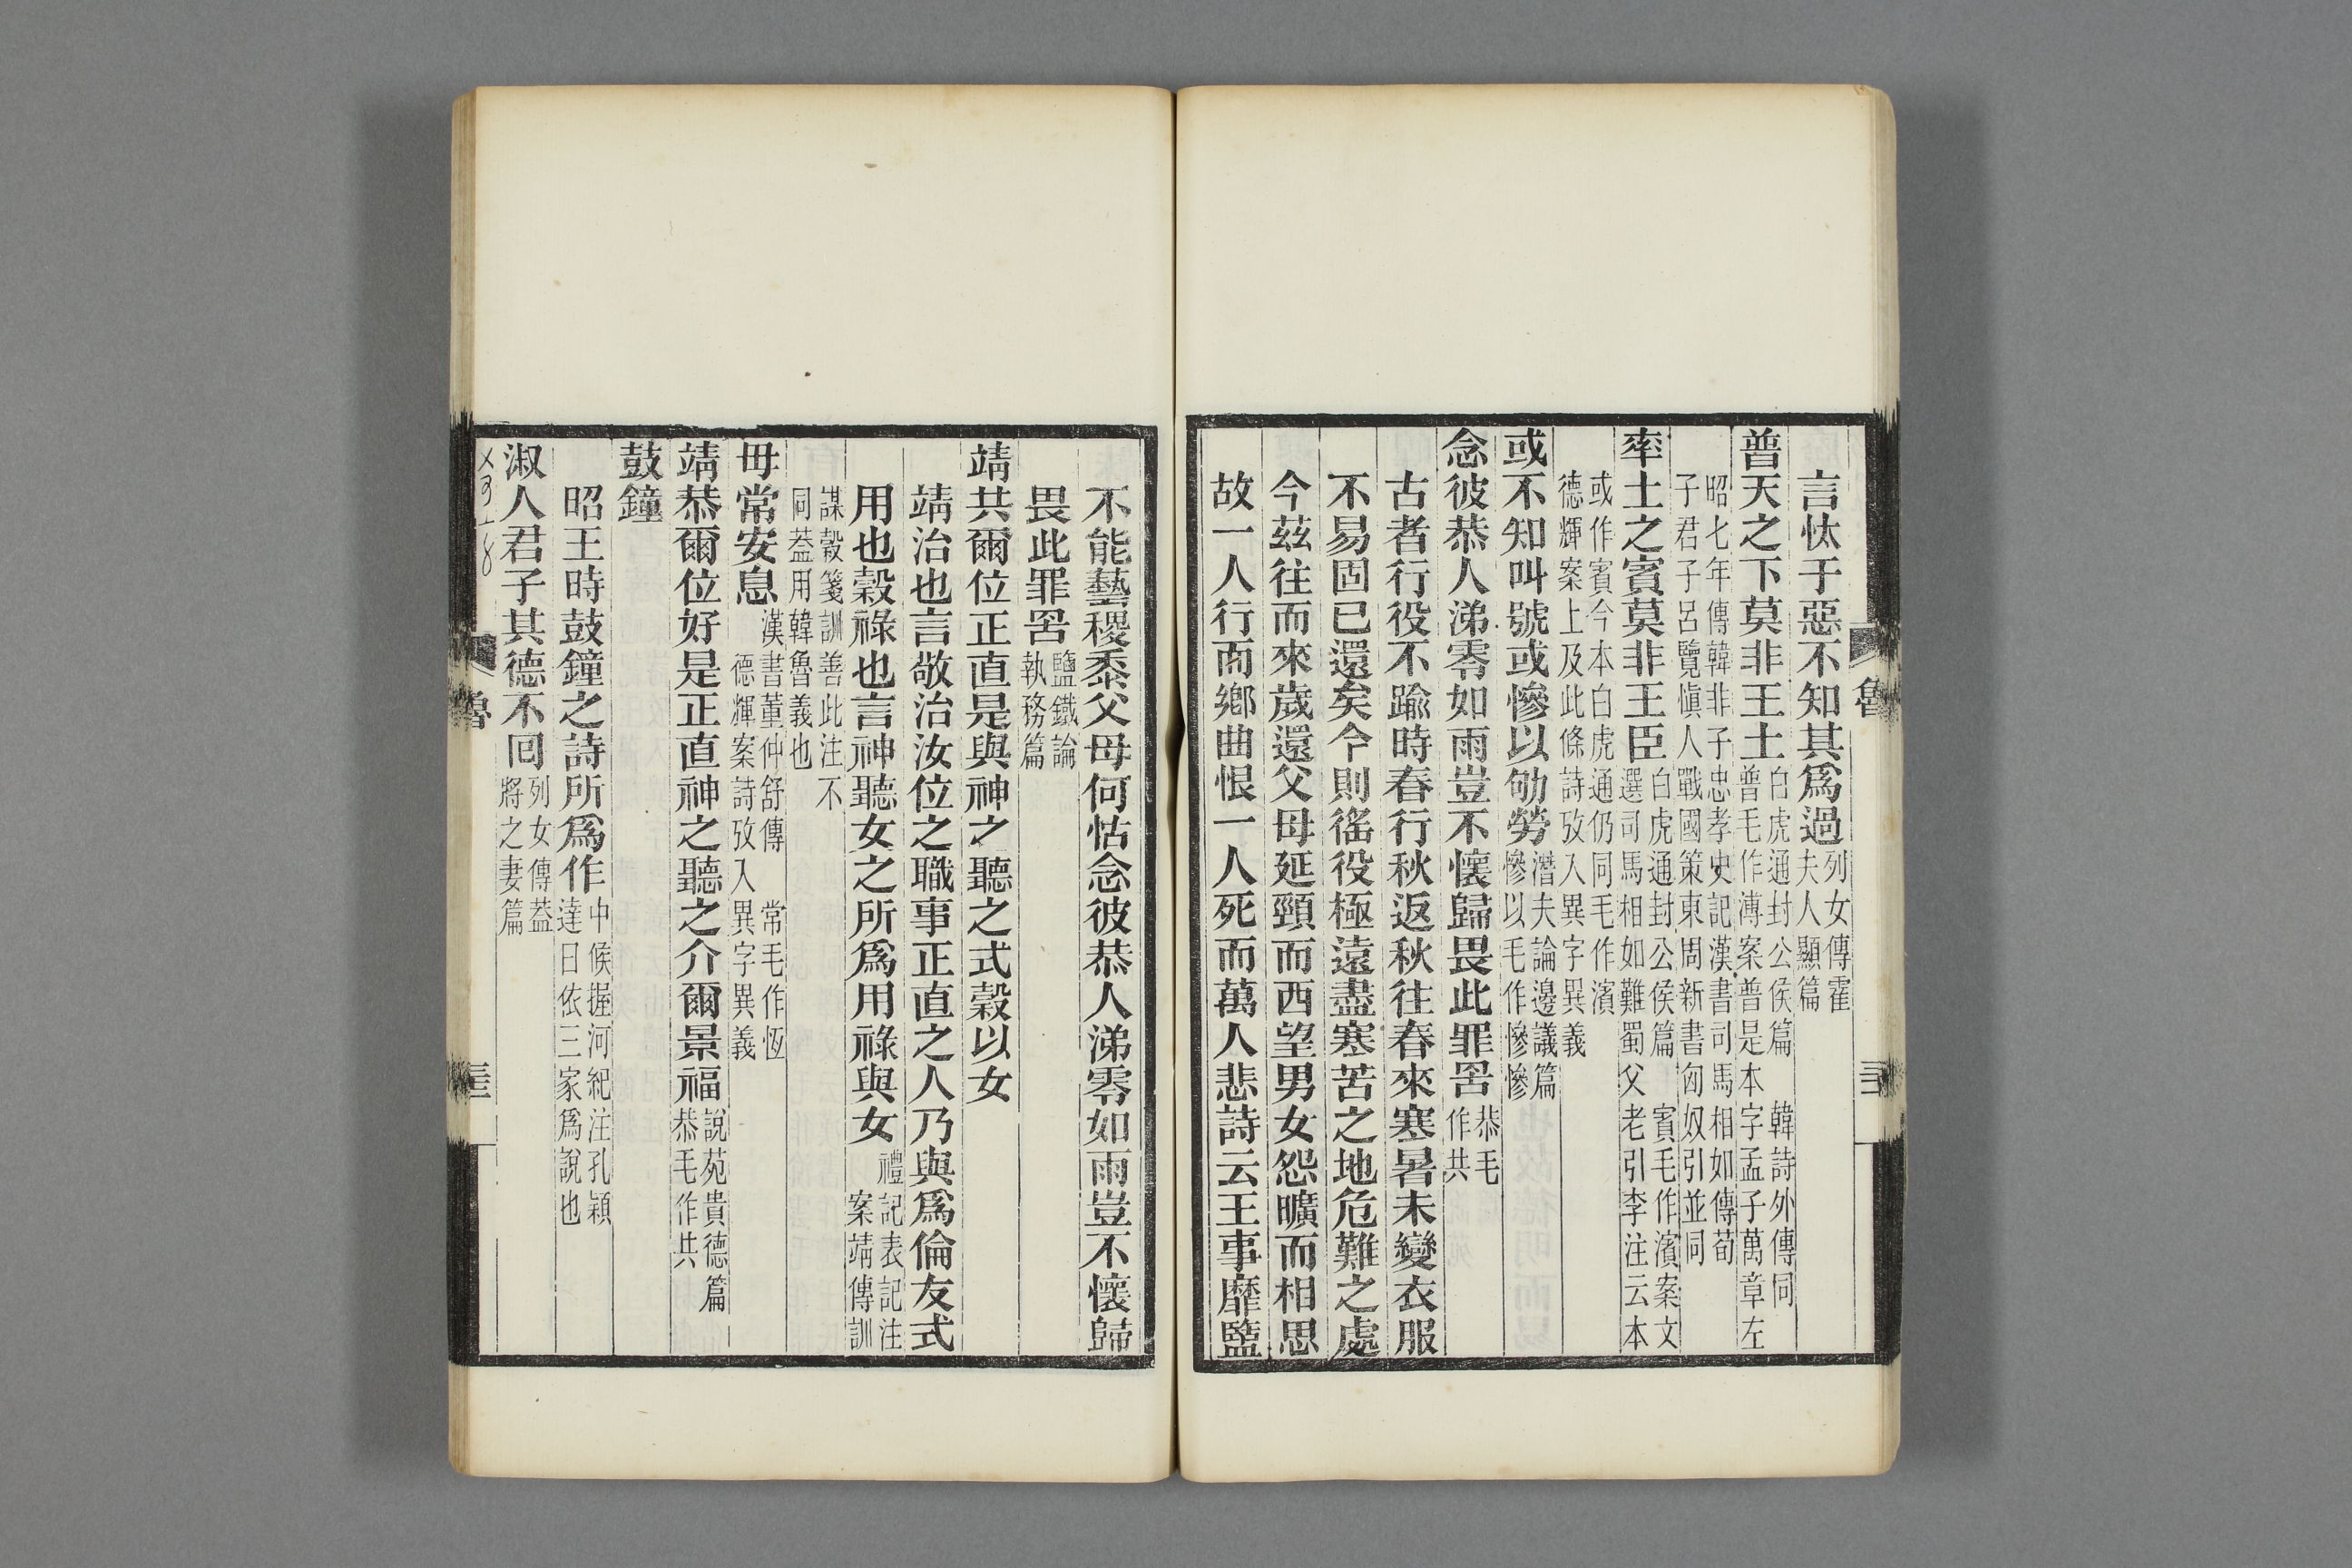 言忲于惡不知其爲過列女傳霍夫人顯篇
普天之下莫非王土白虎通封公侯篇 韓詩外傳同普毛作溥案普是本字孟子萬章左
昭七年傳韓非子忠孝史記漢書司馬相如傳荀子君子呂覽愼人戰國策東周新書匈奴引並同
率土之賓莫非王臣白虎通封公侯篇 賓毛作濱案文選司馬相如難蜀父老引李注云本
或作賓今本白虎通仍同毛作濱德輝案上及此條詩攷入異字異義
或不知叫號或慘以劬勞潛夫論邊議篇慘以毛作慘慘
念彼恭人涕零如雨豈不懷歸畏此罪罟恭毛作共
古者行役不踰時春行秋返秋往春來寒暑未變衣服
不易固已還矣今則徭役極遠盡寒苦之地危難之處
今茲往而來歲還父母延頸而西望男女怨曠而相思
故一人行而鄉曲恨一人死而萬人悲詩云王事靡盬
魯
不能藝稷黍父母何怙念彼恭人涕零如雨豈不懷歸
畏此罪罟鹽鐵論執務篇
靖共爾位正直是與神之聽之式穀以女
靖治也言敬治汝位之職事正直之人乃與爲倫友式
用也穀祿也言神聽女之所爲用祿與女禮記表記注案靖傳訓
謀穀箋訓善此注不同葢用韓魯義也
毋常安息漢書董仲舒傳 常毛作恆德輝案詩攷入異字異義
靖恭爾位好是正直神之聽之介爾景福說苑貴德篇恭毛作共
鼓鐘
昭王時鼓鐘之詩所爲作中候握河紀注孔穎達曰依三家爲說也
淑人君子其德不回列女傳葢將之妻篇
魯